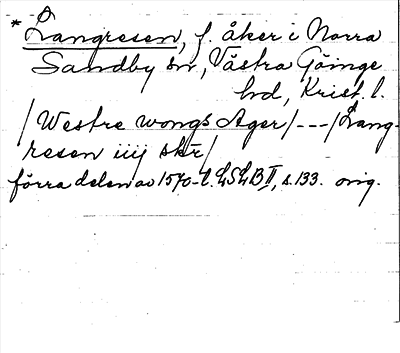 * Langresen, f. åker i Norra
Sandby sn, Västra Göinge
hd, Krist. l.
/Westre wongs Ager/---/Lang-
resen iiij skr/
förra delen av 1570-t. LSLB II, s. 133. orig.